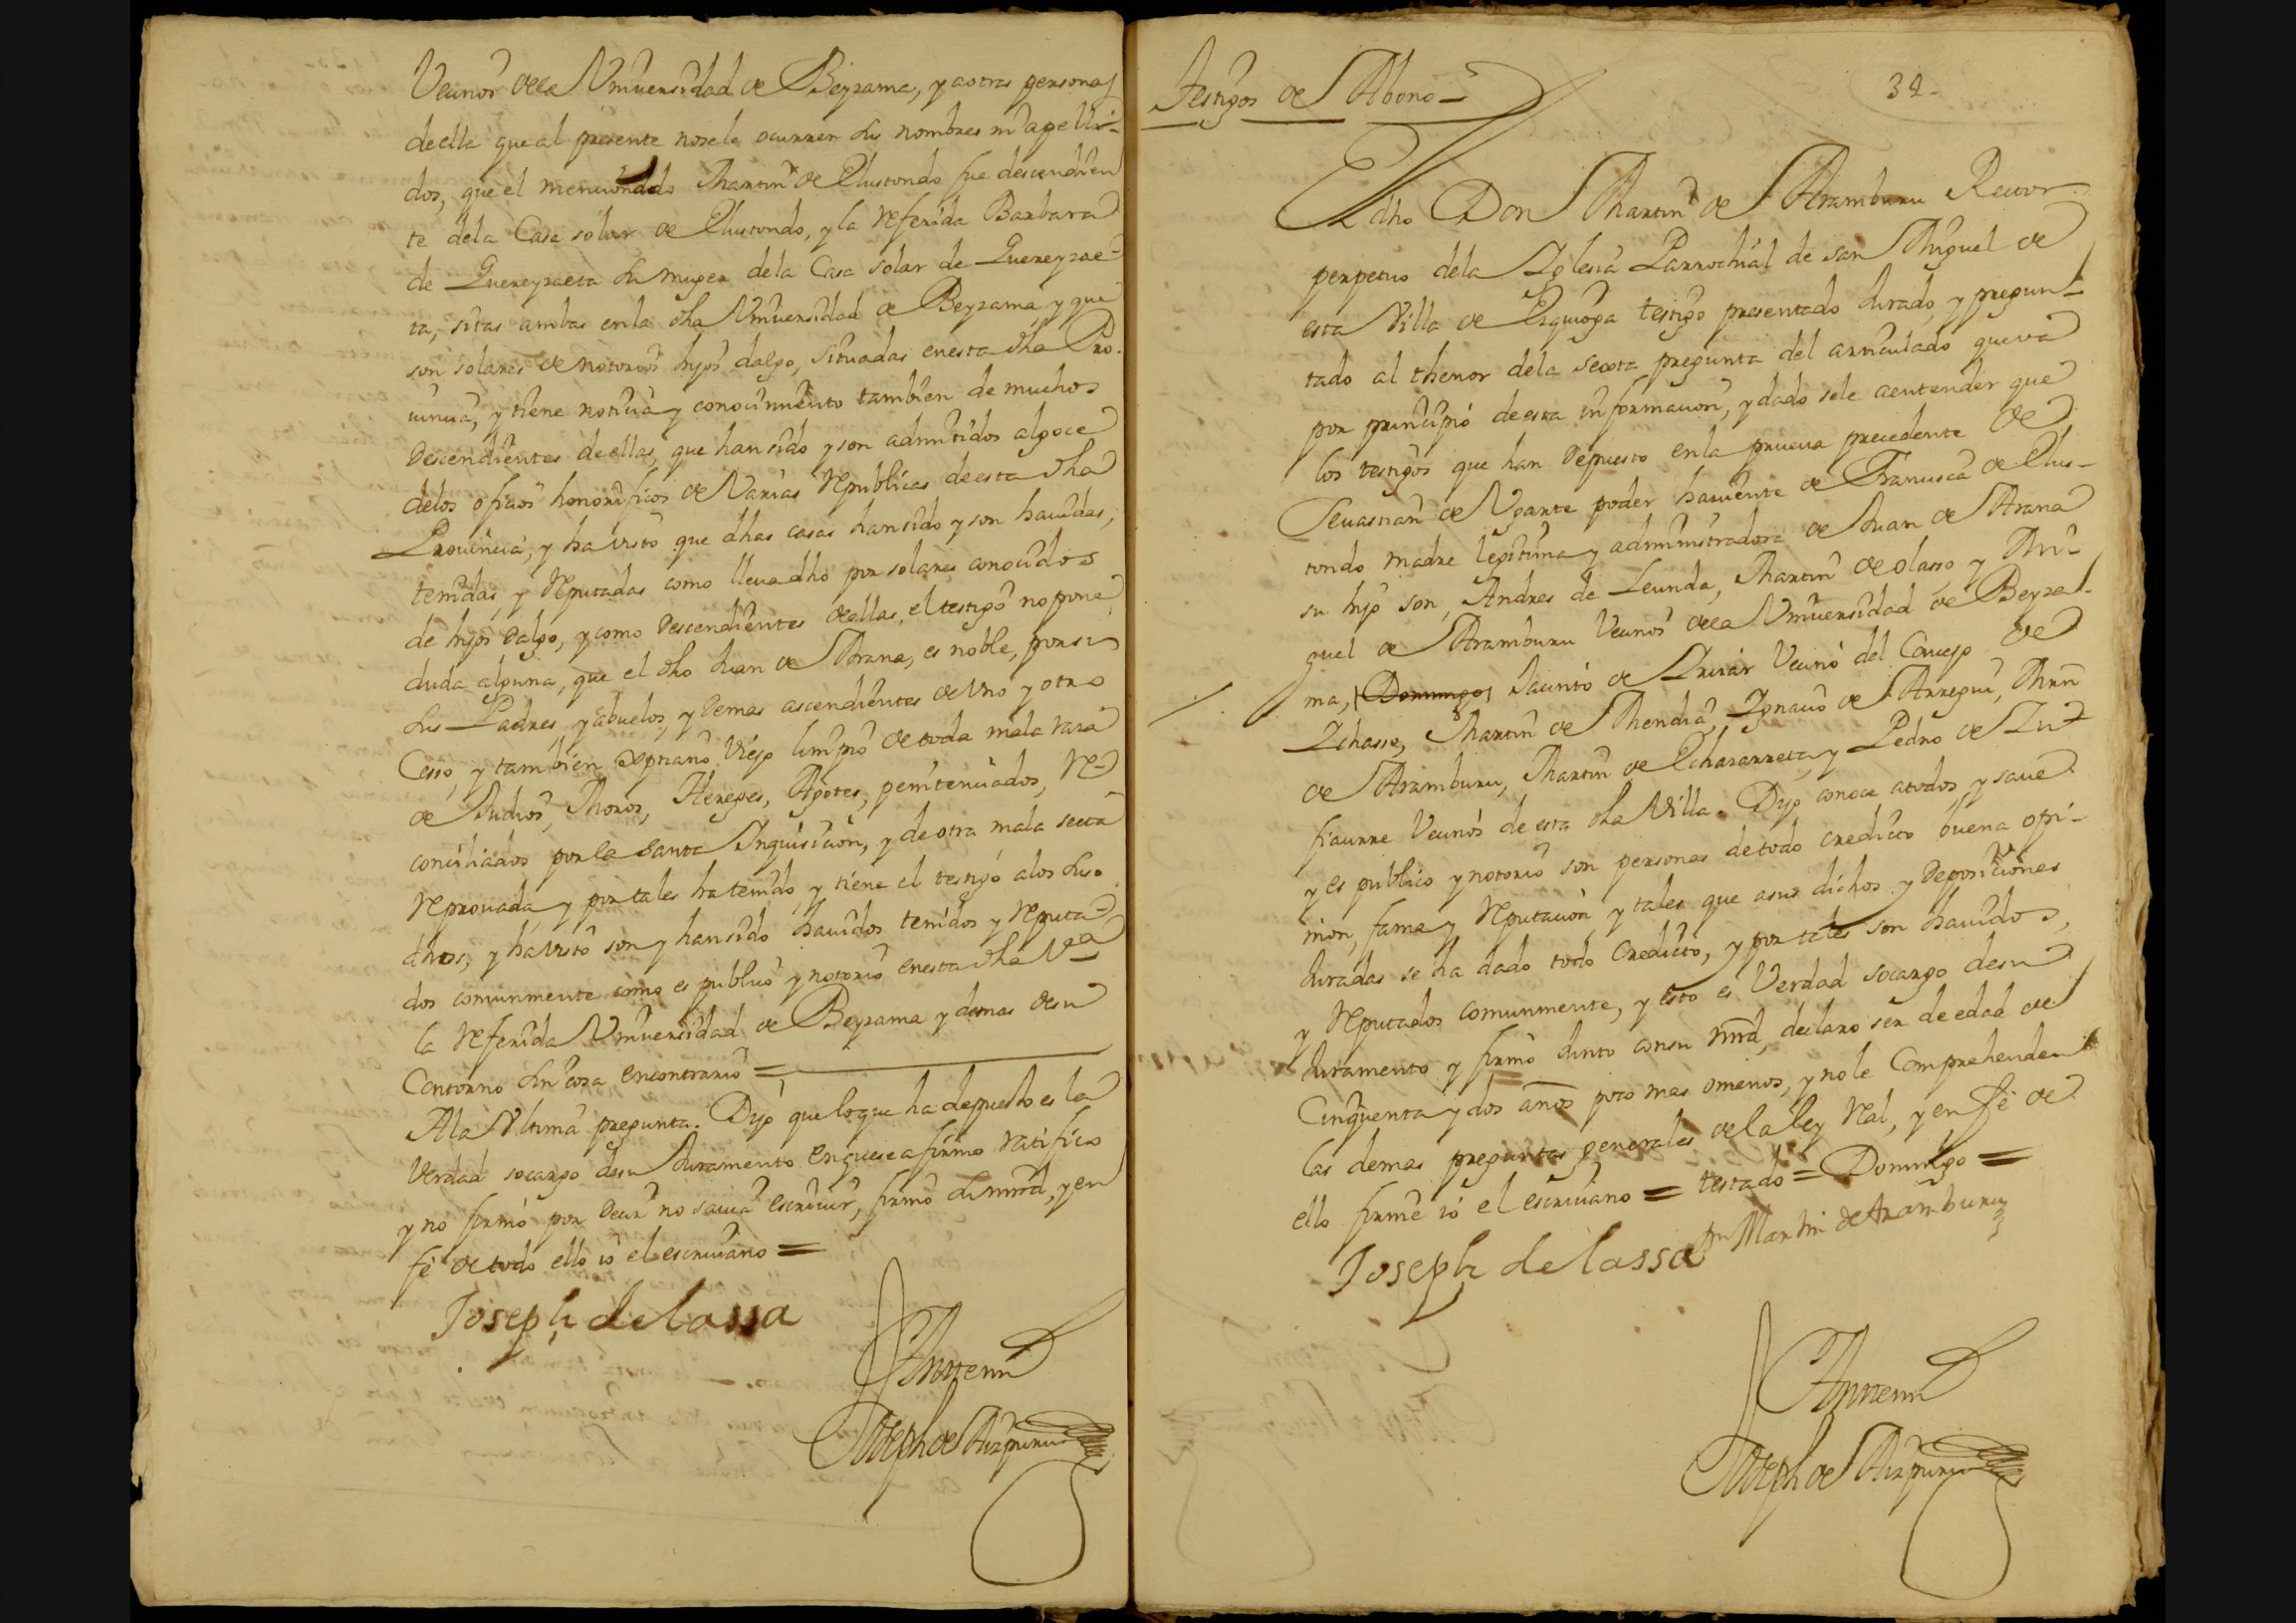 Vecinos dela Vniuersidad de Beyzama, y aotras personas
deella que al presente nosele ocurren sus nombres ni apelli-
dos, que el mencionado Martin de Elustondo fue descendien
te dela Casa solar de Elustondo, y la referida Barbara
de Guereyzaeta su muger dela Casa solar de Guereyzae-
ta, sitas ambas enla dha Vniuersidad de Beyzama, y que
son solares de notorios hijos dalgo, situadas enesta dha Pro-
uincia, y tiene noticia y conocimiento tambien de muchos
Descendientes deellas, que han sido y son admitidos algoce
delos oficios honorificos de Varias Republicas deesta dha
Prouincia, y ha visto que dhas casas hansido y son hauidas,
tenidas, y Reputadas como lleua dho por solares conocidos
de hijos Dalgo, y como Descendientes deellas, el testigo no pone
duda alguna, que el dho Juan de Arana, es noble, porsi
sus Padres, y abuelos, y Demas ascendientes de Vno y otro
Cesso, y tambien xptiano Viejo limpio de toda mala raza
de Judios, Moros, Hereges, Agotes, penitenciados, Re-
conciliados por la Santa Inquisicion, y de otra mala secta
Reprouada y por tales ha tenido, y tiene el testigo alos suso
dhos, y havisto son y hansido hauidos tenidos y Reputa-
dos comunmente como es publico y notorio enesta dha Va
la Referida Vniuersidad de Beyzama y demas desu
Contorno sin cosa encontrario =
Ala Vltima pregunta. Dijo que loque ha depuesto es la
Verdad socargo desu Juramento enquese afirmo ratifico
y no firmó por Decir no sauia escriuir, firmó su mrd, y en
fé de todo ello io el escriuano =
Joseph de lassa
Antemi
Joseph de Aizpuru
Testigos de Abono
32-
El dho Don Martin de Aramburu Rector
perpetuo dela Iglesia Parrochial de san Miguel de
esta Villa de Ezquioga testigo presentado Jurado, y pregun-
tado al thenor dela Sexta pregunta del articulado que va
por principio deesta informacion, y dado sele aentender que
los testigos que han Depuesto enla prueua precedente de
Seuastian de Vgarte poder hauiente de Francisca de Elus-
tondo madre legitima y administradora de Juan de Arana
su hijo son, Andres de Leunda, Martin de olasso y Mi-
guel de Aramburu Vecinos dela Vniuersidad de Beyza-
ma, Domingo Jacinto de Vecino del Concejo de
Ichasso, Martin de Mendia, Ignacio de Arregui, Mrn
de Aramburu, Martin de Echararreta, y Pedro de Iri-
fiaurre Vecinos de esta dha Villa. Dijo conoce atodos y saue
y es publico y notorio son personas detodo credicto buena opi-
nion, fama y Reputacion, y tales que asus dichos y Deposiciones
Juradas se ha dado todo Credicto, y por tales son hauidos,
y Reputados comunmente, y esto es Verdad socargo desu
Juramento y firmó Junto consu mrd, declaro ser de edad de
Cinquenta y dos años poco mas omenos, y nole Comprehenden
las demas preguntas generales dela ley Real, y en fé de
ello firmé io el escriuano = testado = Domingo =
Joseph de lassa Dn Martin de Aramburu
Antemi
Joseph de Aizpuru